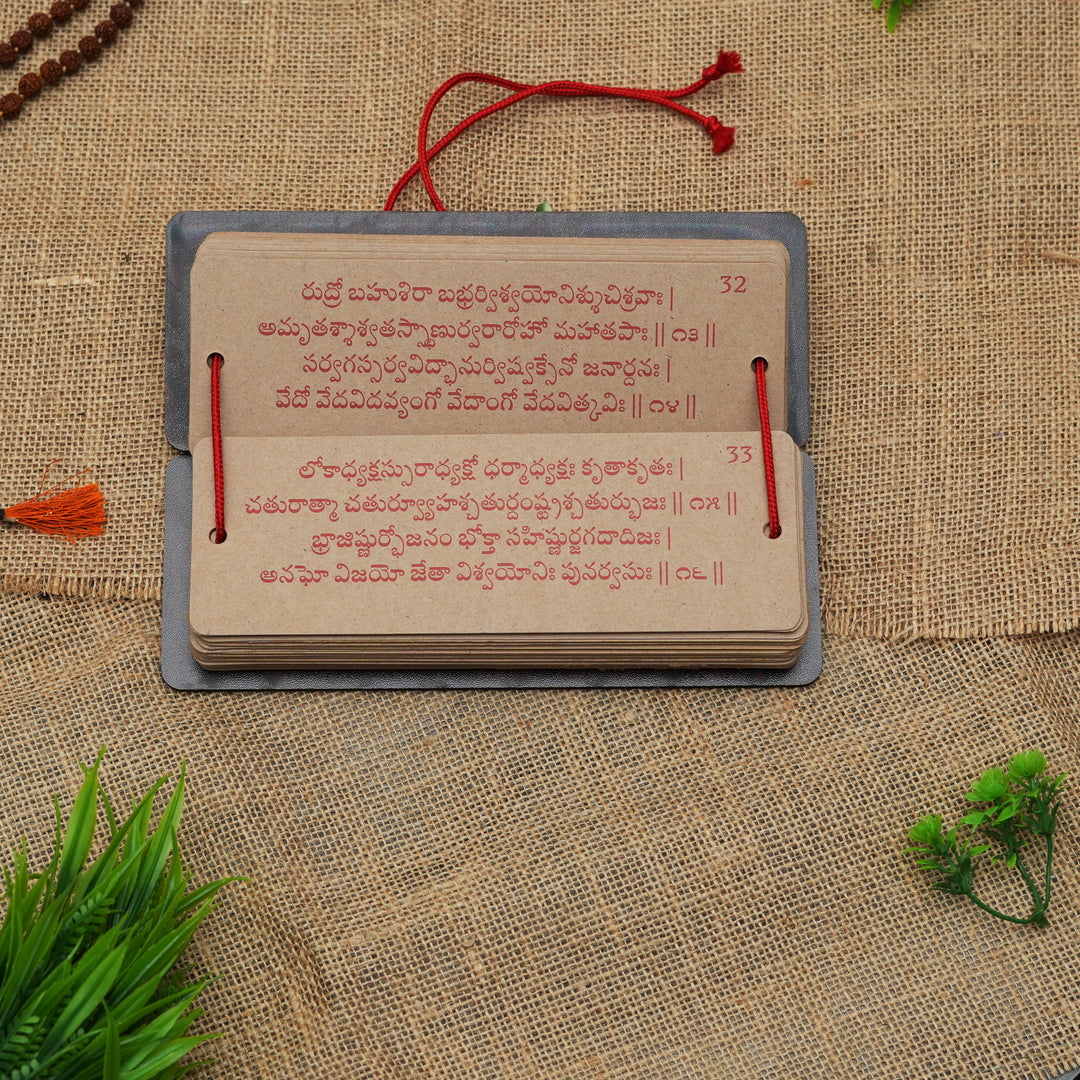 32
రుద్రో బహుశిరా బభ్రుర్విశ్వయోనిశ్శుచిశ్రవాః |
అమృతశ్శాశ్వతస్స్థాణుర్వరారోహో మహాతపాః || ౧౩ ||
సర్వగస్సర్వవిద్భానుర్విష్వక్సేనో జనార్దనః |
వేదో వేదవిదవ్యంగో వేదాంగో వేదవిత్కవిః || ౧౪ ||
33
లోకాధ్యక్షస్సురాధ్యక్షో ధర్మాధ్యక్షః కృతాకృతః |
చతురాత్మా చతుర్వ్యూహశ్చతుర్దంష్ట్రశ్చతుర్భుజః || ౧౫ ||
భ్రాజిష్ణుర్భోజనం భోక్తా సహిష్ణుర్జగదాదిజః |
అనఘో విజయో జేతా విశ్వయోనిః పునర్వసుః || ౧౬ ||